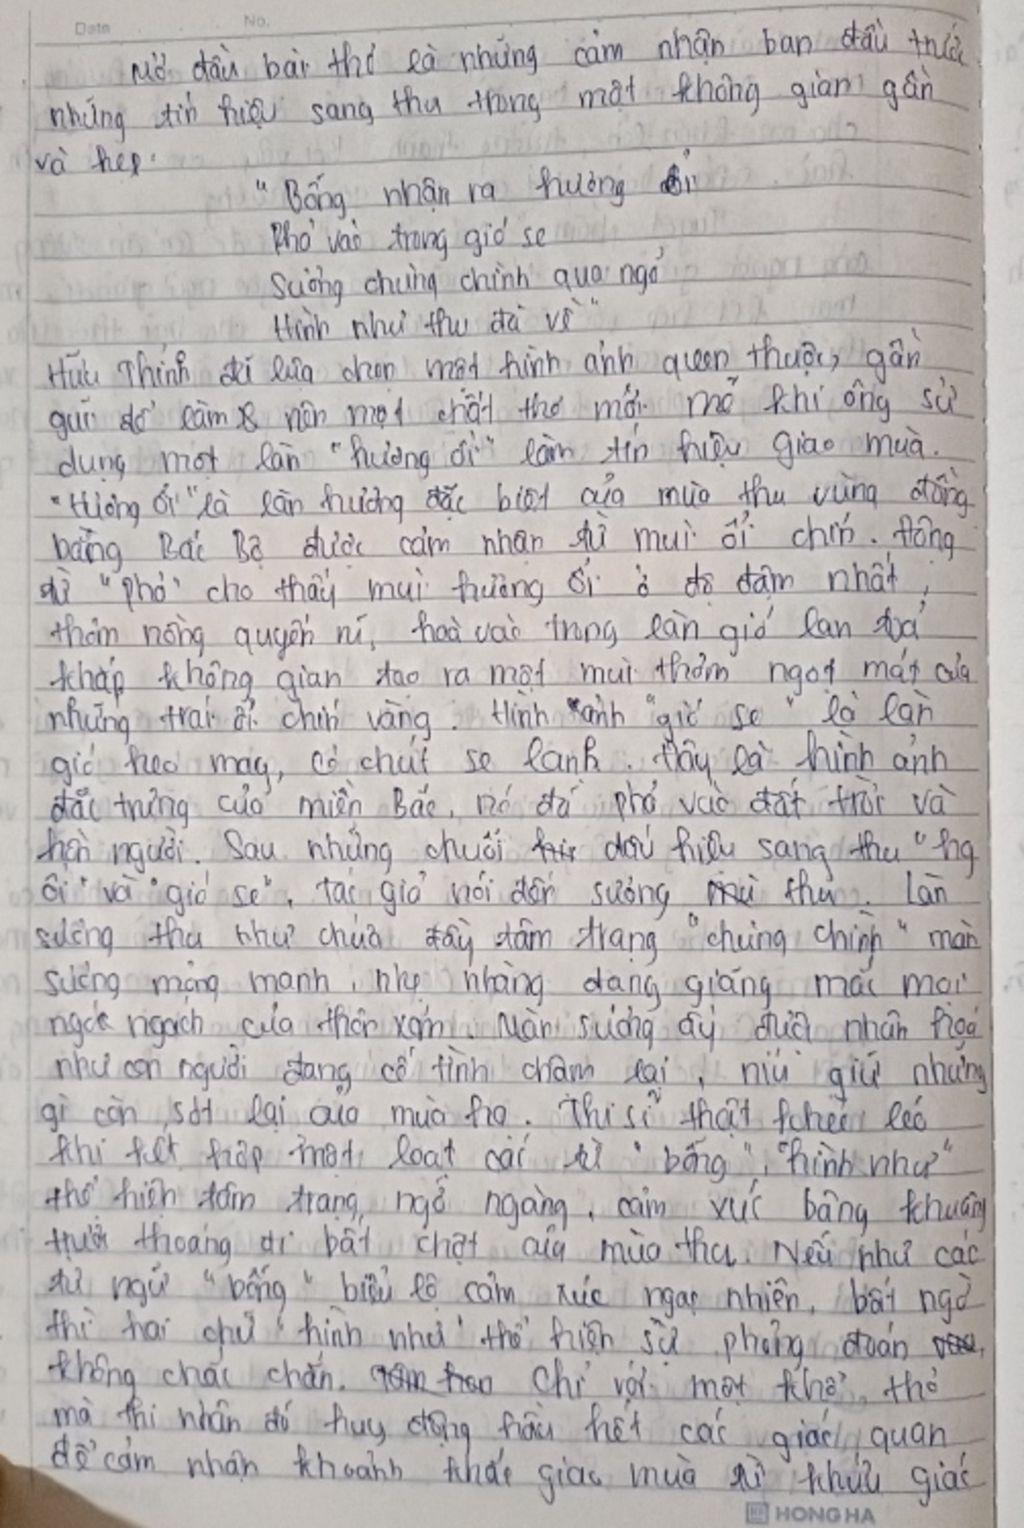 Date No.
Mở đầu bài thơ là những cảm nhận ban đầu trước
những tín hiệu sang thu trong một không gian gần
và hẹp:
"Bỗng nhận ra hương ổi
Phả vào trong gió se
Sương chùng chình qua ngõ
Hình như thu đã về"
Hữu Thỉnh đã lựa chọn một hình ảnh quen thuộc, gần
gũi để làm nên một chất thơ mới mẻ khi ông sử
dụng một lần "hương ổi" làm tín hiệu giao mùa.
"Hương ổi" là làn hương đặc biệt của mùa thu vùng đồng
bằng Bắc Bộ được cảm nhận từ mùi ổi chín. Động
từ "phả" cho thấy mùi hương ổi ở độ đậm nhất,
thơm nồng quyến rũ, hoà vào trong làn gió lan toả
khắp không gian tạo ra một mùi thơm ngọt mát của
những trái ổi chín vàng. Hình ảnh "gió se" là làn
gió heo may, có chút se lạnh. Đây là hình ảnh
đặc trưng của miền Bắc, nó đã phả vào đất trời và
hồn người. Sau những chuỗi dấu hiệu sang thu "hg
ổi" và "gió se", tác giả nói đến sương thu. Làn
sương thu như chứa đầy tâm trạng "chùng chình" màn
sương mỏng manh, nhẹ nhàng đang giăng mắc mọi
ngóc ngách của thôn xóm. Màn sương ấy được nhân hoá
như con người đang cố tình chậm lại, níu giữ những
gì còn sót lại của mùa hạ. Thi sĩ thật khéo léo
khi kết hợp một loạt các từ "bỗng", "hình như"
thể hiện tâm trạng ngỡ ngàng, cảm xúc bâng khuâng
trước thoáng đi bất chợt của mùa thu. Nếu như các
từ ngữ "bỗng" biểu lộ cảm xúc ngạc nhiên, bất ngờ
thì hai chữ "hình như" thể hiện sự phỏng đoán
không chắc chắn. Chỉ với một khổ thơ
mà thi nhân đã huy động hầu hết các giác quan
để cảm nhận khoảnh khắc giao mùa từ khứu giác
HONG HA